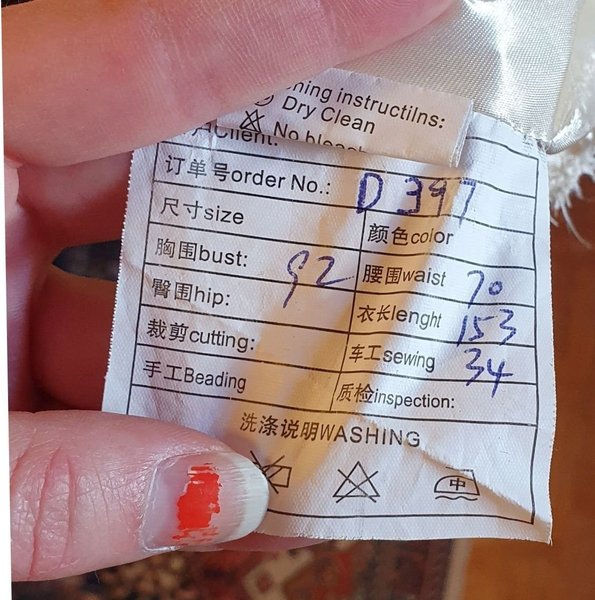 ning instructilns:
Dry Clean
No bleach
Client:
订单号order No.: D 397
尺寸size 颜色color
胸围bust: 92 腰围waist 70
臀围hip: 衣长lenght 153
裁剪cutting: 车工sewing 34
手工Beading 质检inspection:
洗涤说明WASHING
中